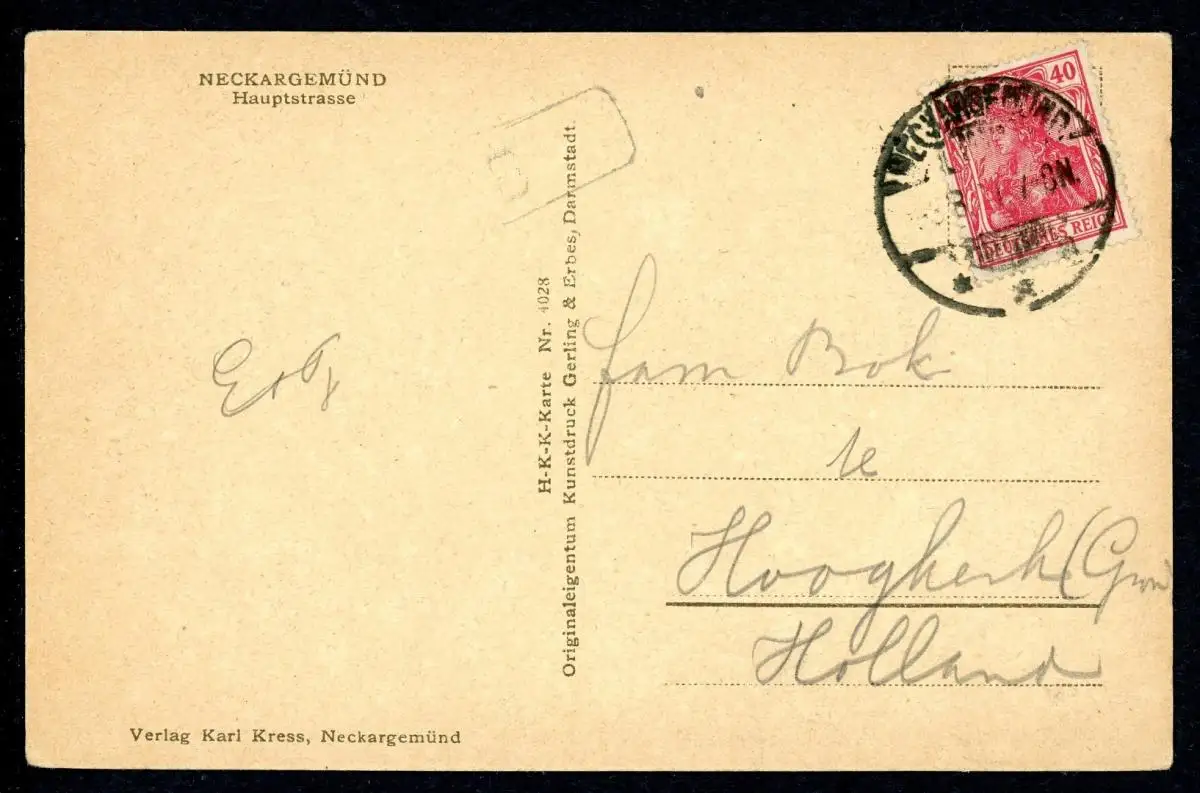 NECKARGEMÜND
Hauptstrasse
H-K-K-Karte Nr. 4028
Originaleigentum Kunstdruck Gerling & Erbes, Darmstadt.
40
DEUTSCHES REICH
NECKARGEMÜND
7-8N.
fam Bok
te
Hoogkerk (Gron)
Holland
Verlag Karl Kress, Neckargemünd